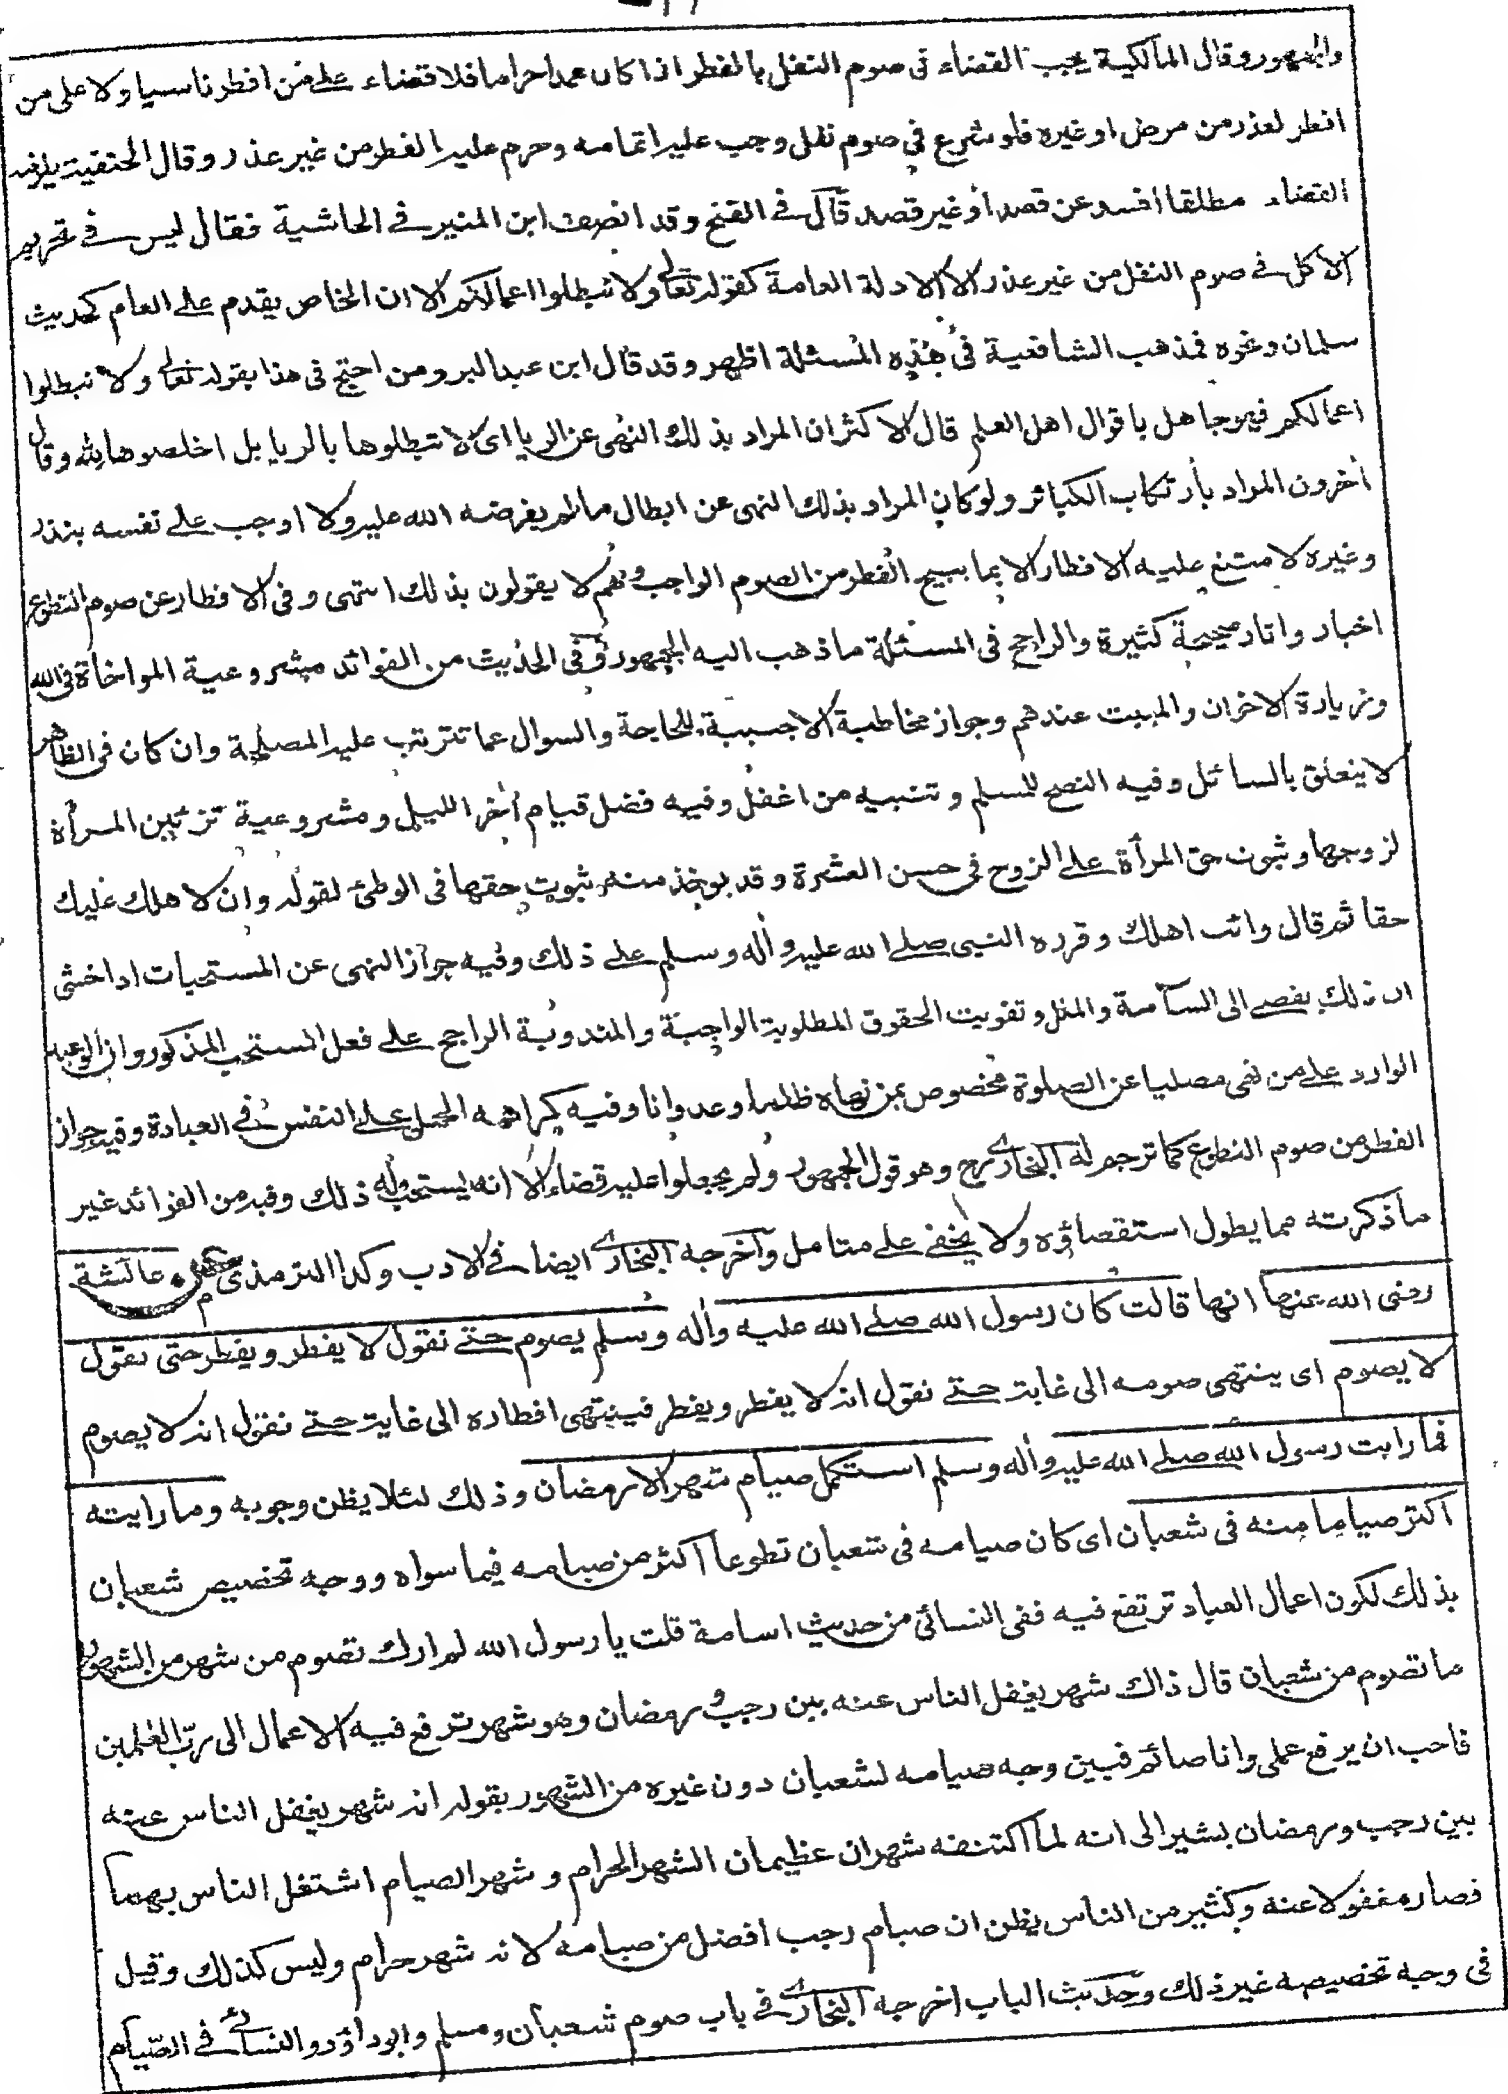 والجمهور وقال المالكية يجب القضاء فى صوم النفل بالفطر اذا كان عمدا حراما فلا قضاء على من افطر ناسيا ولا على من
افطر لعذر من مرض او غيره فلو شرع فى صوم نفل وجب عليه اتمامه وحرم عليه الفطر من غير عذر وقال الحنفية يلزمه
القضاء مطلقا افسد عن قصد أو غير قصد قال فى الفتح وقد انصف ابن المنير فى الحاشية فقال ليس فى تحريم
الاكل فى صوم النفل من غير عذر الا الادلة العامة كقوله تعالى ولا تبطلوا اعمالكم الا ان الخاص يقدم على العام كحديث
سلمان ونحوه فمذهب الشافعية فى هذه المسئلة اظهر وقد قال ابن عبد البر ومن احتج فى هذا بقوله تعالى ولا تبطلوا
اعمالكم فهو جاهل باقوال اهل العلم قال الاكثر ان المراد بذلك النهى عن الريا اى لا تبطلوها بالريا بل اخلصوها لله وقال
أخرون المراد بأرتكاب الكبائر ولو كان المراد بذلك النهى عن ابطال مالم يفرضه الله عليه ولا اوجب على نفسه بنذر
وغيره لامتنع عليه الافطار الا بما يبيح الفطر من الصوم الواجب وهم لا يقولون بذلك انتهى وفى الافطار عن صوم التطوع
اخبار واثار صحيحة كثيرة والراجح فى المسئلة ما ذهب اليه الجمهور وفى الحديث من الفوائد مشروعية المواخاة فى الله
وزيارة الاخوان والمبيت عندهم وجواز مخاطبة الاجنبية للحاجة والسوال عما تترتب عليه المصلحة وان كان فى الظاهر
لا يتعلق بالسائل وفيه النصح للمسلم وتنبيه من اغفل وفيه فضل قيام أخر الليل ومشروعية تزئين المرأة
لزوجها وثبوت حق المرأة على الزوج فى حسن العشرة وقد يوخذ منه ثبوت حقها فى الوطئ لقوله وان لاهلك عليك
حقا ثم قال وائت اهلك وقرره النبى صلى الله عليه وأله وسلم على ذلك وفيه جواز النهى عن المستحبات اذا خشى
ان ذلك يفضى الى السآمة والملل وتفويت الحقوق المطلوبة الواجبة والمندوبة الراجح على فعل المستحب المذكور وان الوعيد
الوارد على من نهى مصليا عن الصلوة مخصوص بمن نهاه ظلما وعدوانا وفيه كراهه الحمل على النفس فى العبادة وفيه جواز
الفطر من صوم التطوع كما ترجم له البخارى رح وهو قول الجمهور ولم يجعلوا عليه قضاء الا انه يستحب له ذلك وفيه من الفوائد غير
ما ذكرته مما يطول استقصاؤه ولا يخفى على متامل وأخرجه البخارى ايضا فى الادب وكذا الترمذى عن عائشة
رضى الله عنها انها قالت كان رسول الله صلى الله عليه وأله وسلم يصوم حتى نقول لا يفطر ويفطر حتى نقول
لا يصوم اى ينتهى صومه الى غاية حتى نقول انه لا يفطر ويفطر فينتهى افطاره الى غاية حتى نقول انه لا يصوم
فما رايت رسول الله صلى الله عليه وأله وسلم استكمل صيام شهر الا رمضان وذلك لئلا يظن وجوبه وما رايته
اكثر صياما منه فى شعبان اى كان صيامه فى شعبان تطوعا اكثر من صيامه فيما سواه ووجه تخصيص شعبان
بذلك لكون اعمال العباد ترتفع فيه ففى النسائى من حديث اسامة قلت يا رسول الله لم ارك تصوم من شهر من الشهور
ما تصوم من شعبان قال ذاك شهر يغفل الناس عنه بين رجب ورمضان وهو شهر ترفع فيه الاعمال الى رب العلمين
فاحب ان يرفع عملى وانا صائم فبين وجه صيامه لشعبان دون غيره من الشهور بقوله انه شهر يغفل الناس عنه
بين رجب ورمضان يشير الى انه لما اكتنفه شهران عظيمان الشهر الحرام وشهر الصيام اشتغل الناس بهما
فصار مغفولا عنه وكثير من الناس يظن ان صيام رجب افضل من صيامه لانه شهر حرام وليس كذلك وقيل
فى وجه تخصيصه غير ذلك وحديث الباب اخرجه البخارى فى باب صوم شعبان ومسلم وابو داؤد والنسائى فى الصيام